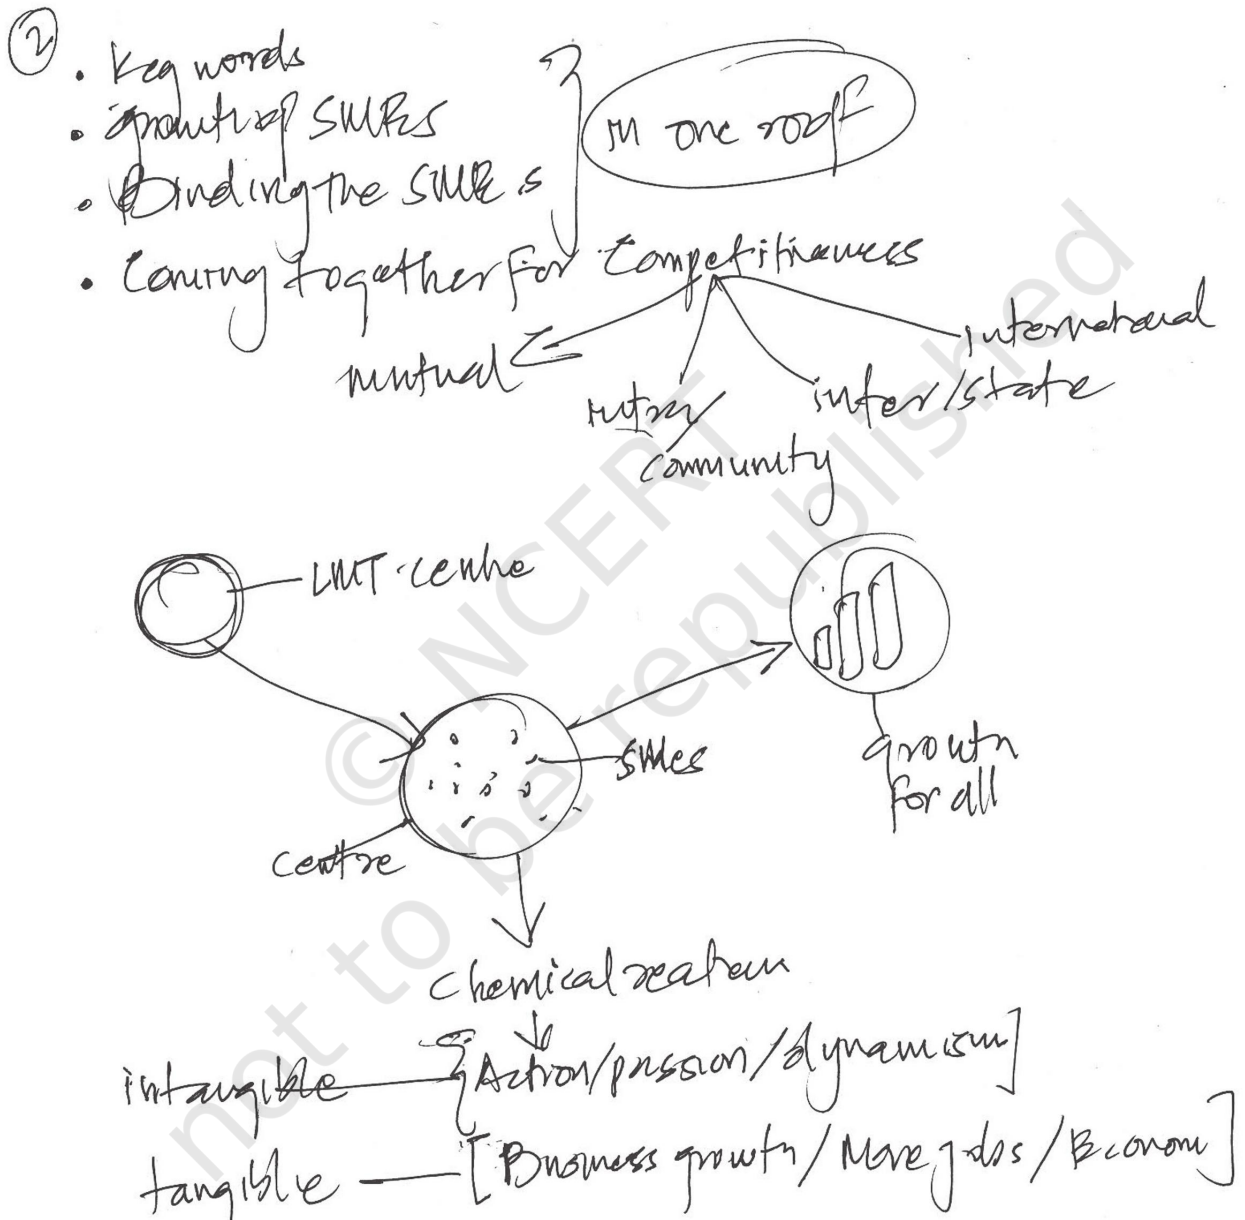 2
• Key words
• growth of SMEs
• Binding the SMEs
in one roof
• Coming together for Competitiveness
mutual
intra/
community
inter/state
international
LMT-centre
SMEs
centre
growth
for all
Chemical reaction
intangible — {Action/passion/dynamism]
tangible — [Business growth/More jobs/Econom]
© NCERT
not to be republished